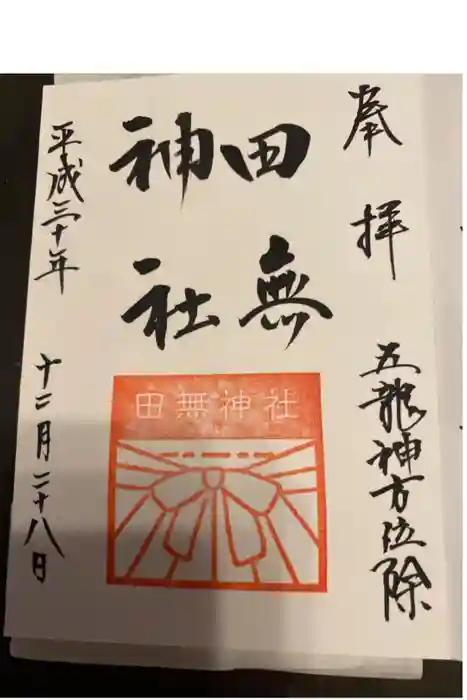 奉拝
五龍神方位除
田無
神社
田無神社
平成三十年
十二月二十八日